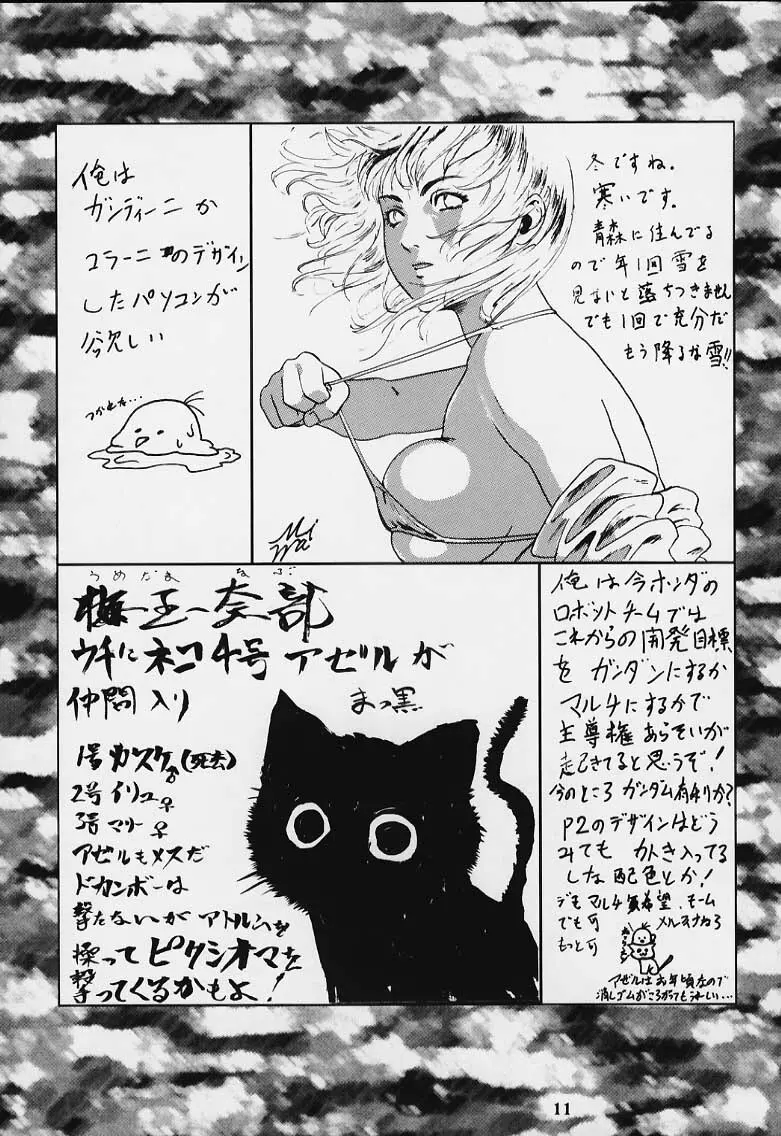 冬ですね。
寒いです。
青森に住んでる
ので年1回雪を
見ないと落ちつきません
でも1回で充分だ
もう降るな雪!!
俺は
ガンディーニか
コラーニのデザイン
したパソコンが
欲しい
つかれた…
うめだま なぶ
梅玉奈部
ウチにネコ4号 アゼルが
仲間入り
まっ黒
1号 カスケ♂(死去)
2号 イリュ♀
3号 マリー♀
アゼルもメスだ
ドカンボーは
撃たないがアトルムを
操ってピクシオマを
撃ってくるかもよ!
俺は今ホンダの
ロボットチームでは
これからの開発目標
をガンダンにするか
マルチにするかで
主導権あらそいが
起きてると思うぞ!
今のところガンダム有利か?
P2のデザインはどう
みても 入ってる
しな配色とか!
デモマルチ 希望、モーム
でも可
もっと可
アゼルはお年頃なので
消しゴムがころがってもうれしい…
11